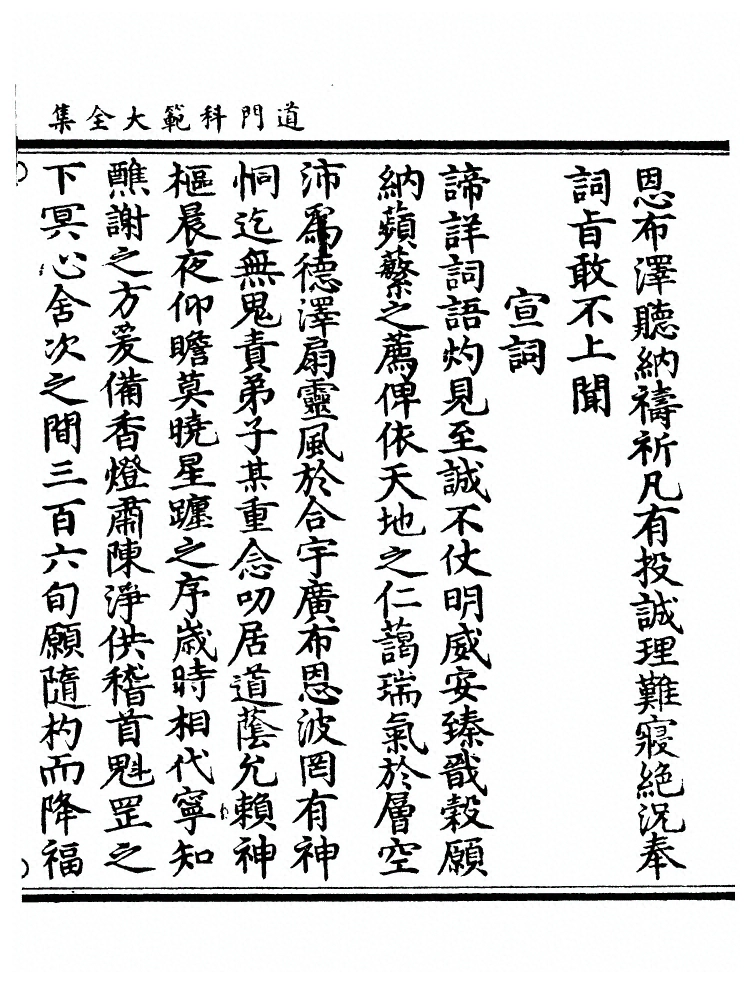 道門科範大全集
恩布澤聽納禱祈凡有投誠理難寢絶況奉
詞旨敢不上聞
宣詞
諦詳詞語灼見至誠不仗明威安臻戩穀願
納蘋蘩之薦俾依天地之仁藹瑞氣於層空
沛爲德澤扇靈風於合宇廣布恩波罔有神
恫迄無鬼責弟子某重念叨居道蔭允賴神
樞晨夜仰瞻莫曉星躔之序歲時相代寧知
醮謝之方爰備香燈肅陳淨供稽首魁罡之
下冥心舍次之間三百六旬願隨杓而降福